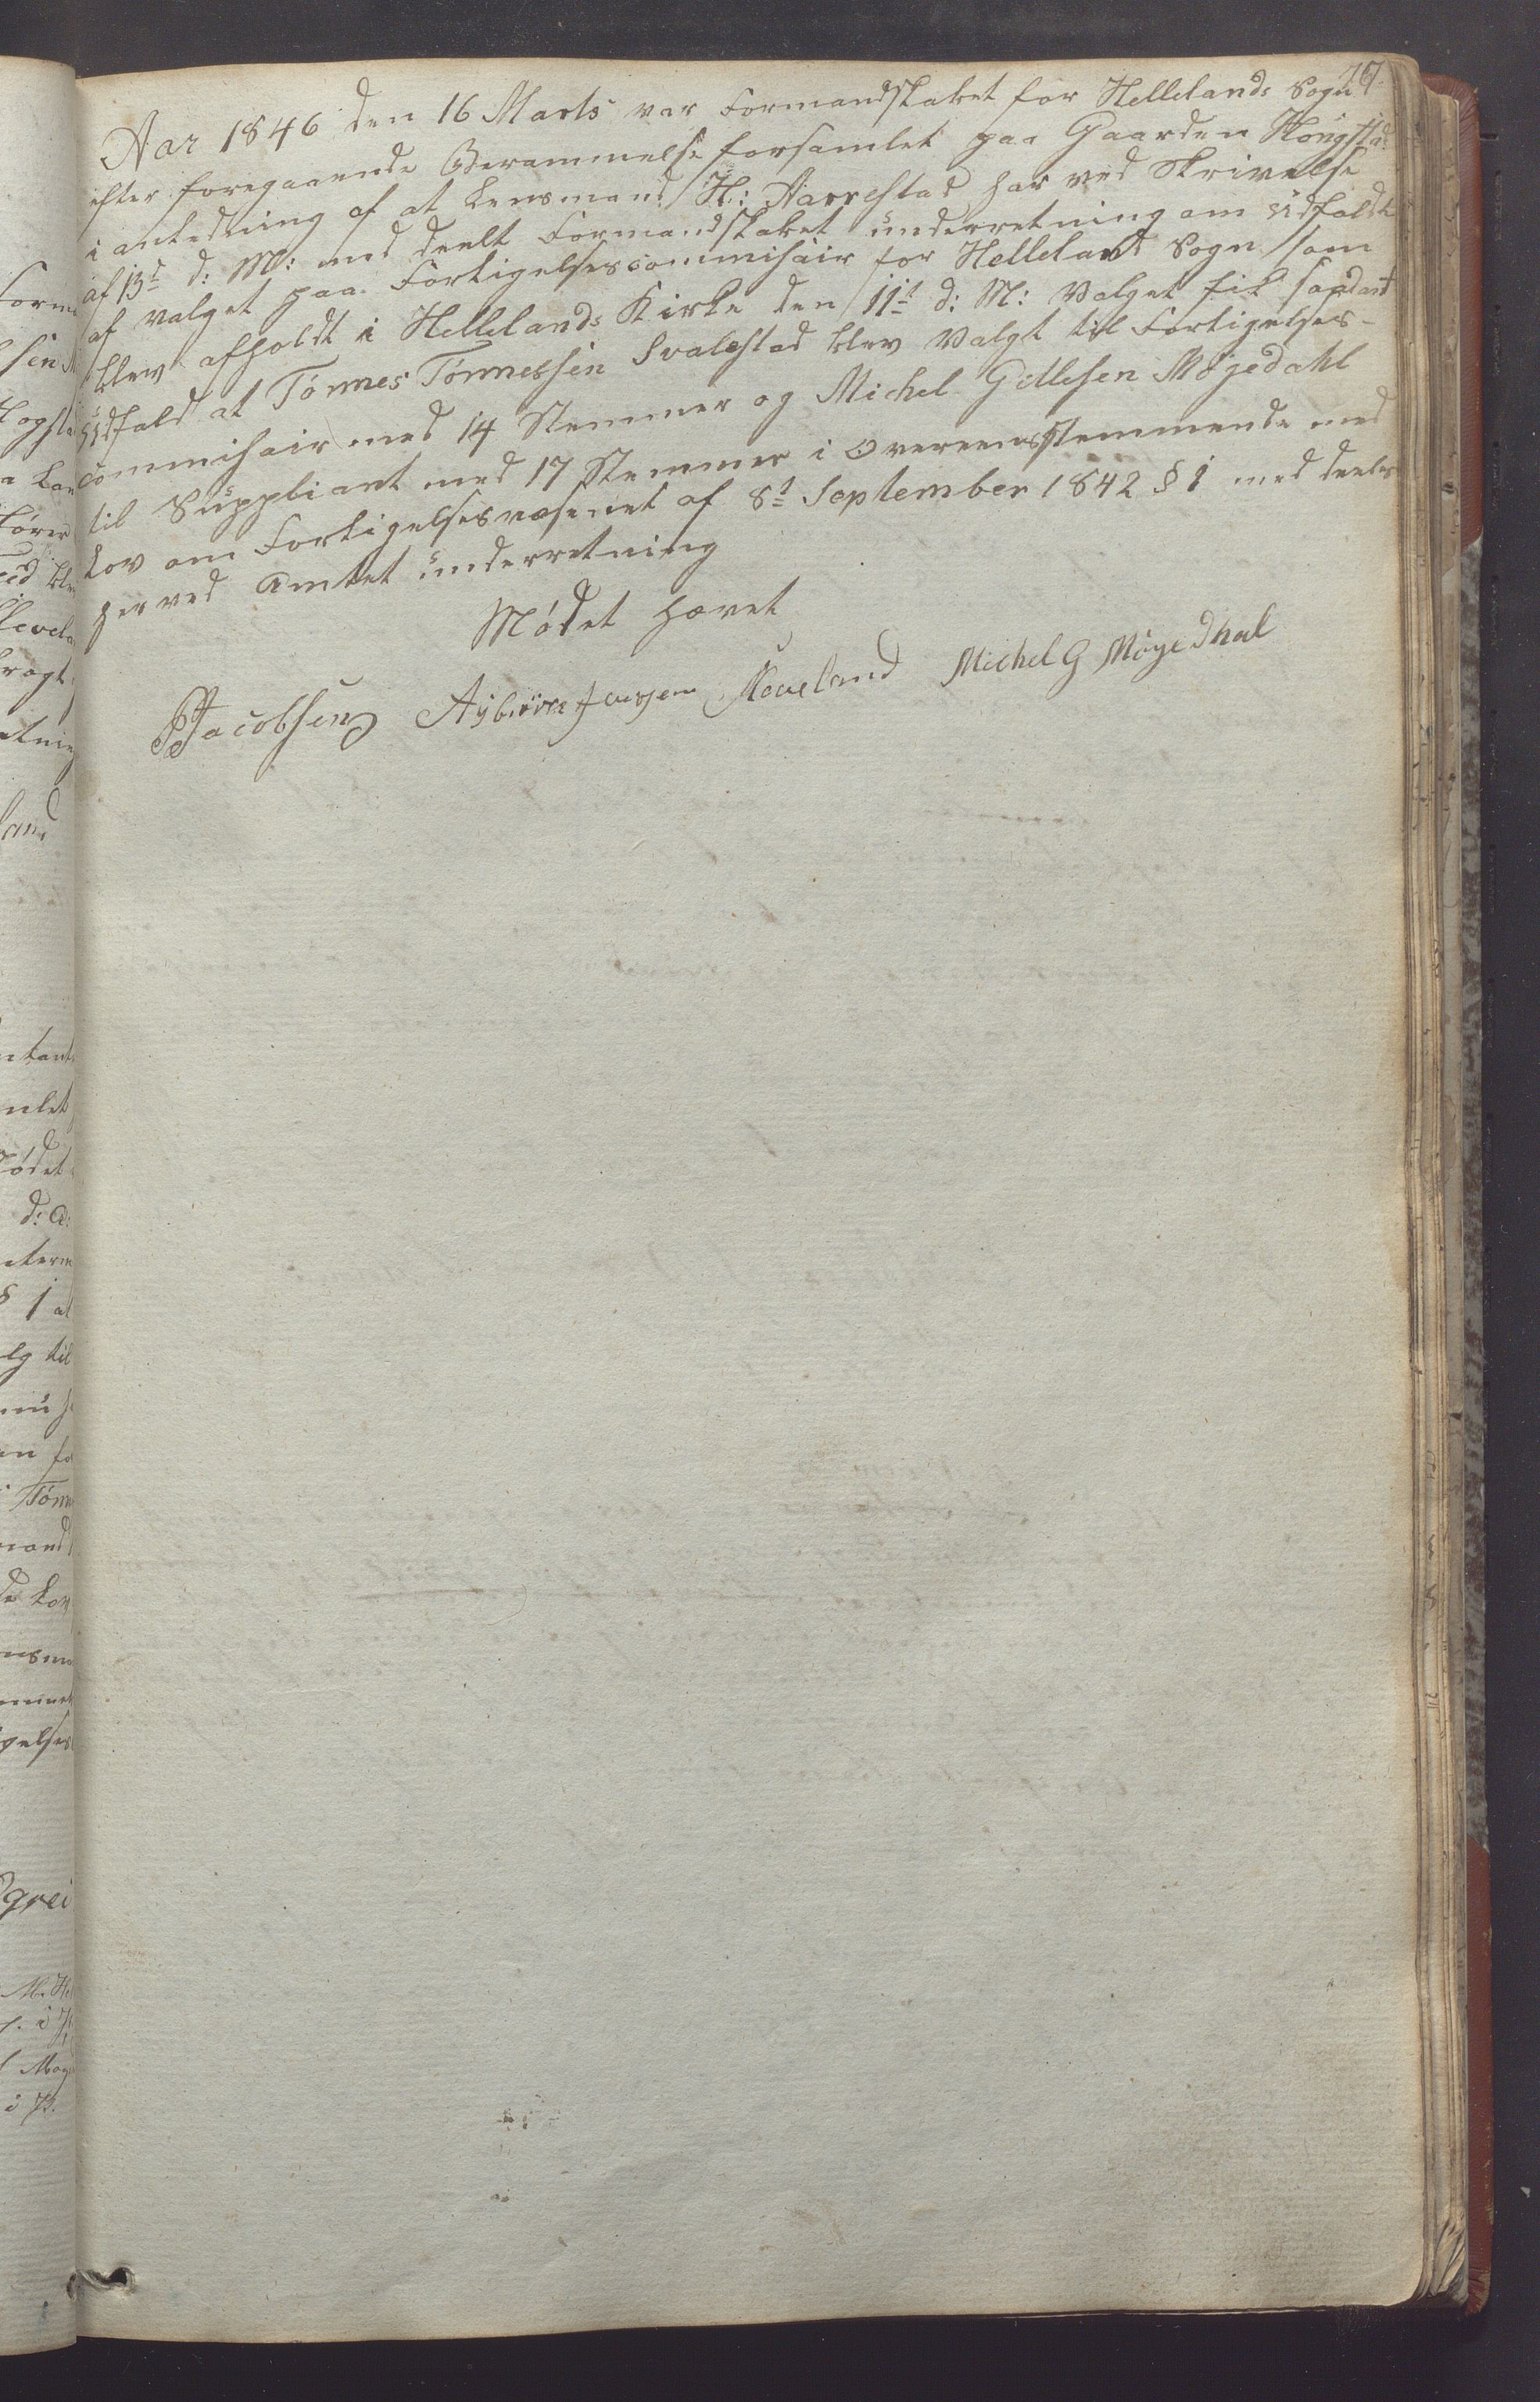 Aar 1846 den 16 Marts var Formandskabet for Hellelands Sogn
efter foregaaende Berammelse forsamlet paa Gaarden Høugstad
i anledning af at Lensmand H: Aarrestad har ved Skrivelse
af 13d d: M: med deelt Formandskabet underretning om udfaldt
af valget paa Forligelsescommisair for Helleland Sogn som
blev afholdt i Hellelands Kirke den 11t d: M: Valget fik saadant
udfald at Tönnes Tönnessen Svalestad blev Valgt til Forligelses-
commisair med 14 Stemmer og Michel Gillesen Møjedahl
til Suppliant med 17 Stemmer i Overeensstemmende med
Lov om Forligelsesvæsenet af 8t September 1842 § 1 med deeles
herved Amtet underretning
Mödet hævet
PJacobsen Aÿbiörn Iversen Koveland Michel G Möyedhal